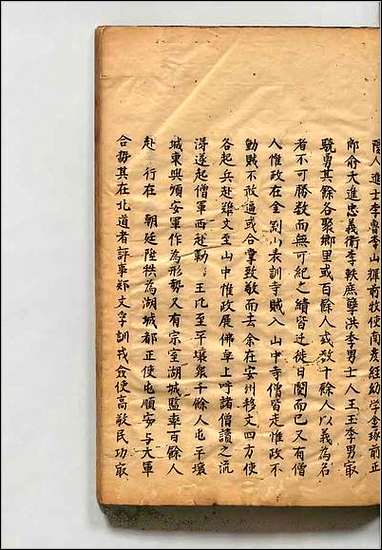 陰人進士李魯李山輝前牧使南彦經幼學金琢前正
郎俞大進忠義衛李軼庶孽洪季男士人王玉季男最
驍勇其餘各聚鄉里或百餘人或數十餘人以義爲名
者不可勝數而無可紀之績皆遷徙日閱而已又有僧
人惟政在金剛山表訓寺賊入山中寺僧皆走惟政不
動賊不敢逼或合掌致敬而去余在安州移文四方使
各起兵赴難文至山中惟政展佛卓上呼諸僧讀之流
涕遂起僧軍西赴勤王比至平壤衆千餘人屯平壤
城東與順安軍作為形勢又有宗室湖城監率百餘人
赴行在朝廷陞秩為湖城都正使屯順安与大軍
合勢其在北道者評事郑文孚訓戎僉使高敬民功最